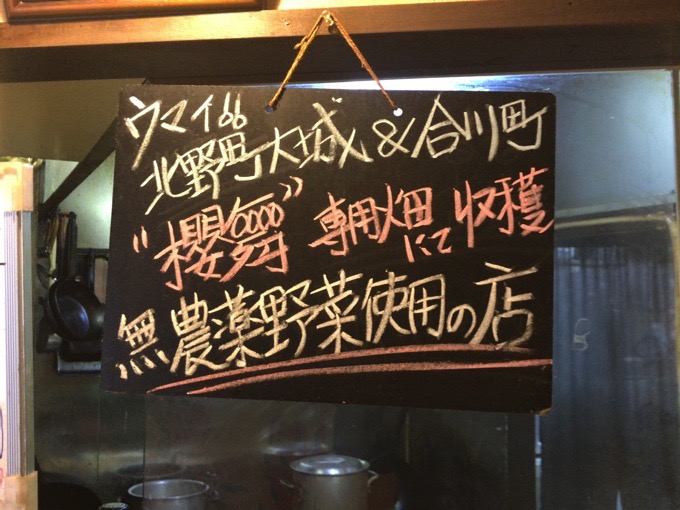 ウマイ66
北野町大城&合川町
"櫻舞" 専用畑にて収穫
無農薬野菜使用の店